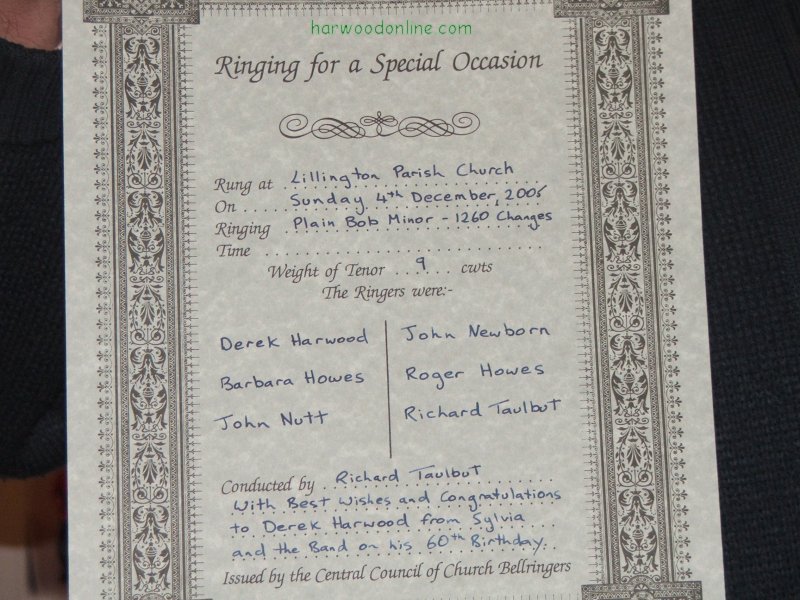 harwoodonline.com
Ringing for a Special Occasion
Rung at Lillington Parish Church
On Sunday 4th December, 2005
Ringing Plain Bob Minor - 1260 Changes
Time
Weight of Tenor 9 cwts
The Ringers were:-
Derek Harwood
Barbara Howes
John Nutt
John Newborn
Roger Howes
Richard Taulbut
Conducted by Richard Taulbut
With Best Wishes and Congratulations
to Derek Harwood from Sylvia
and the Band on his 60th Birthday.
Issued by the Central Council of Church Bellringers